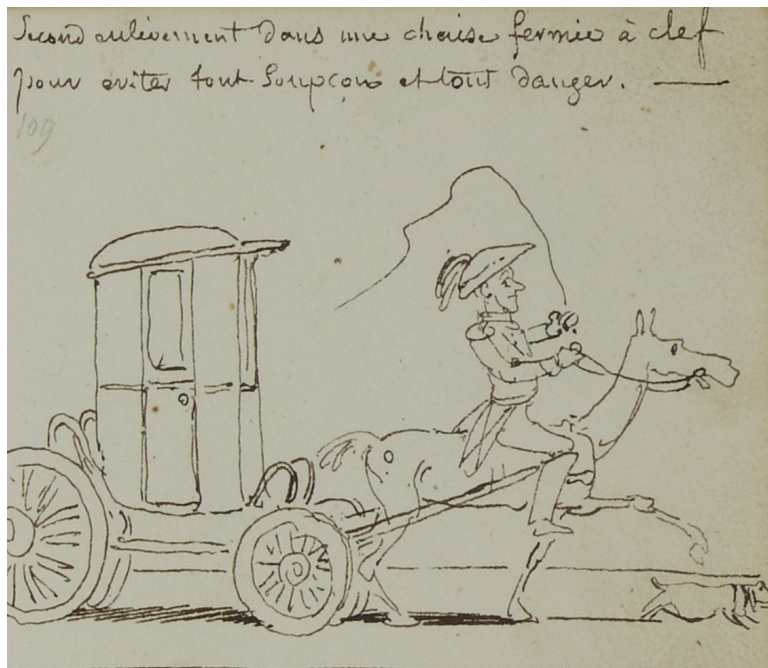 Second enlèvement dans une chaise fermée à clef
pour eviter tout Soupçon et tout danger. —
109